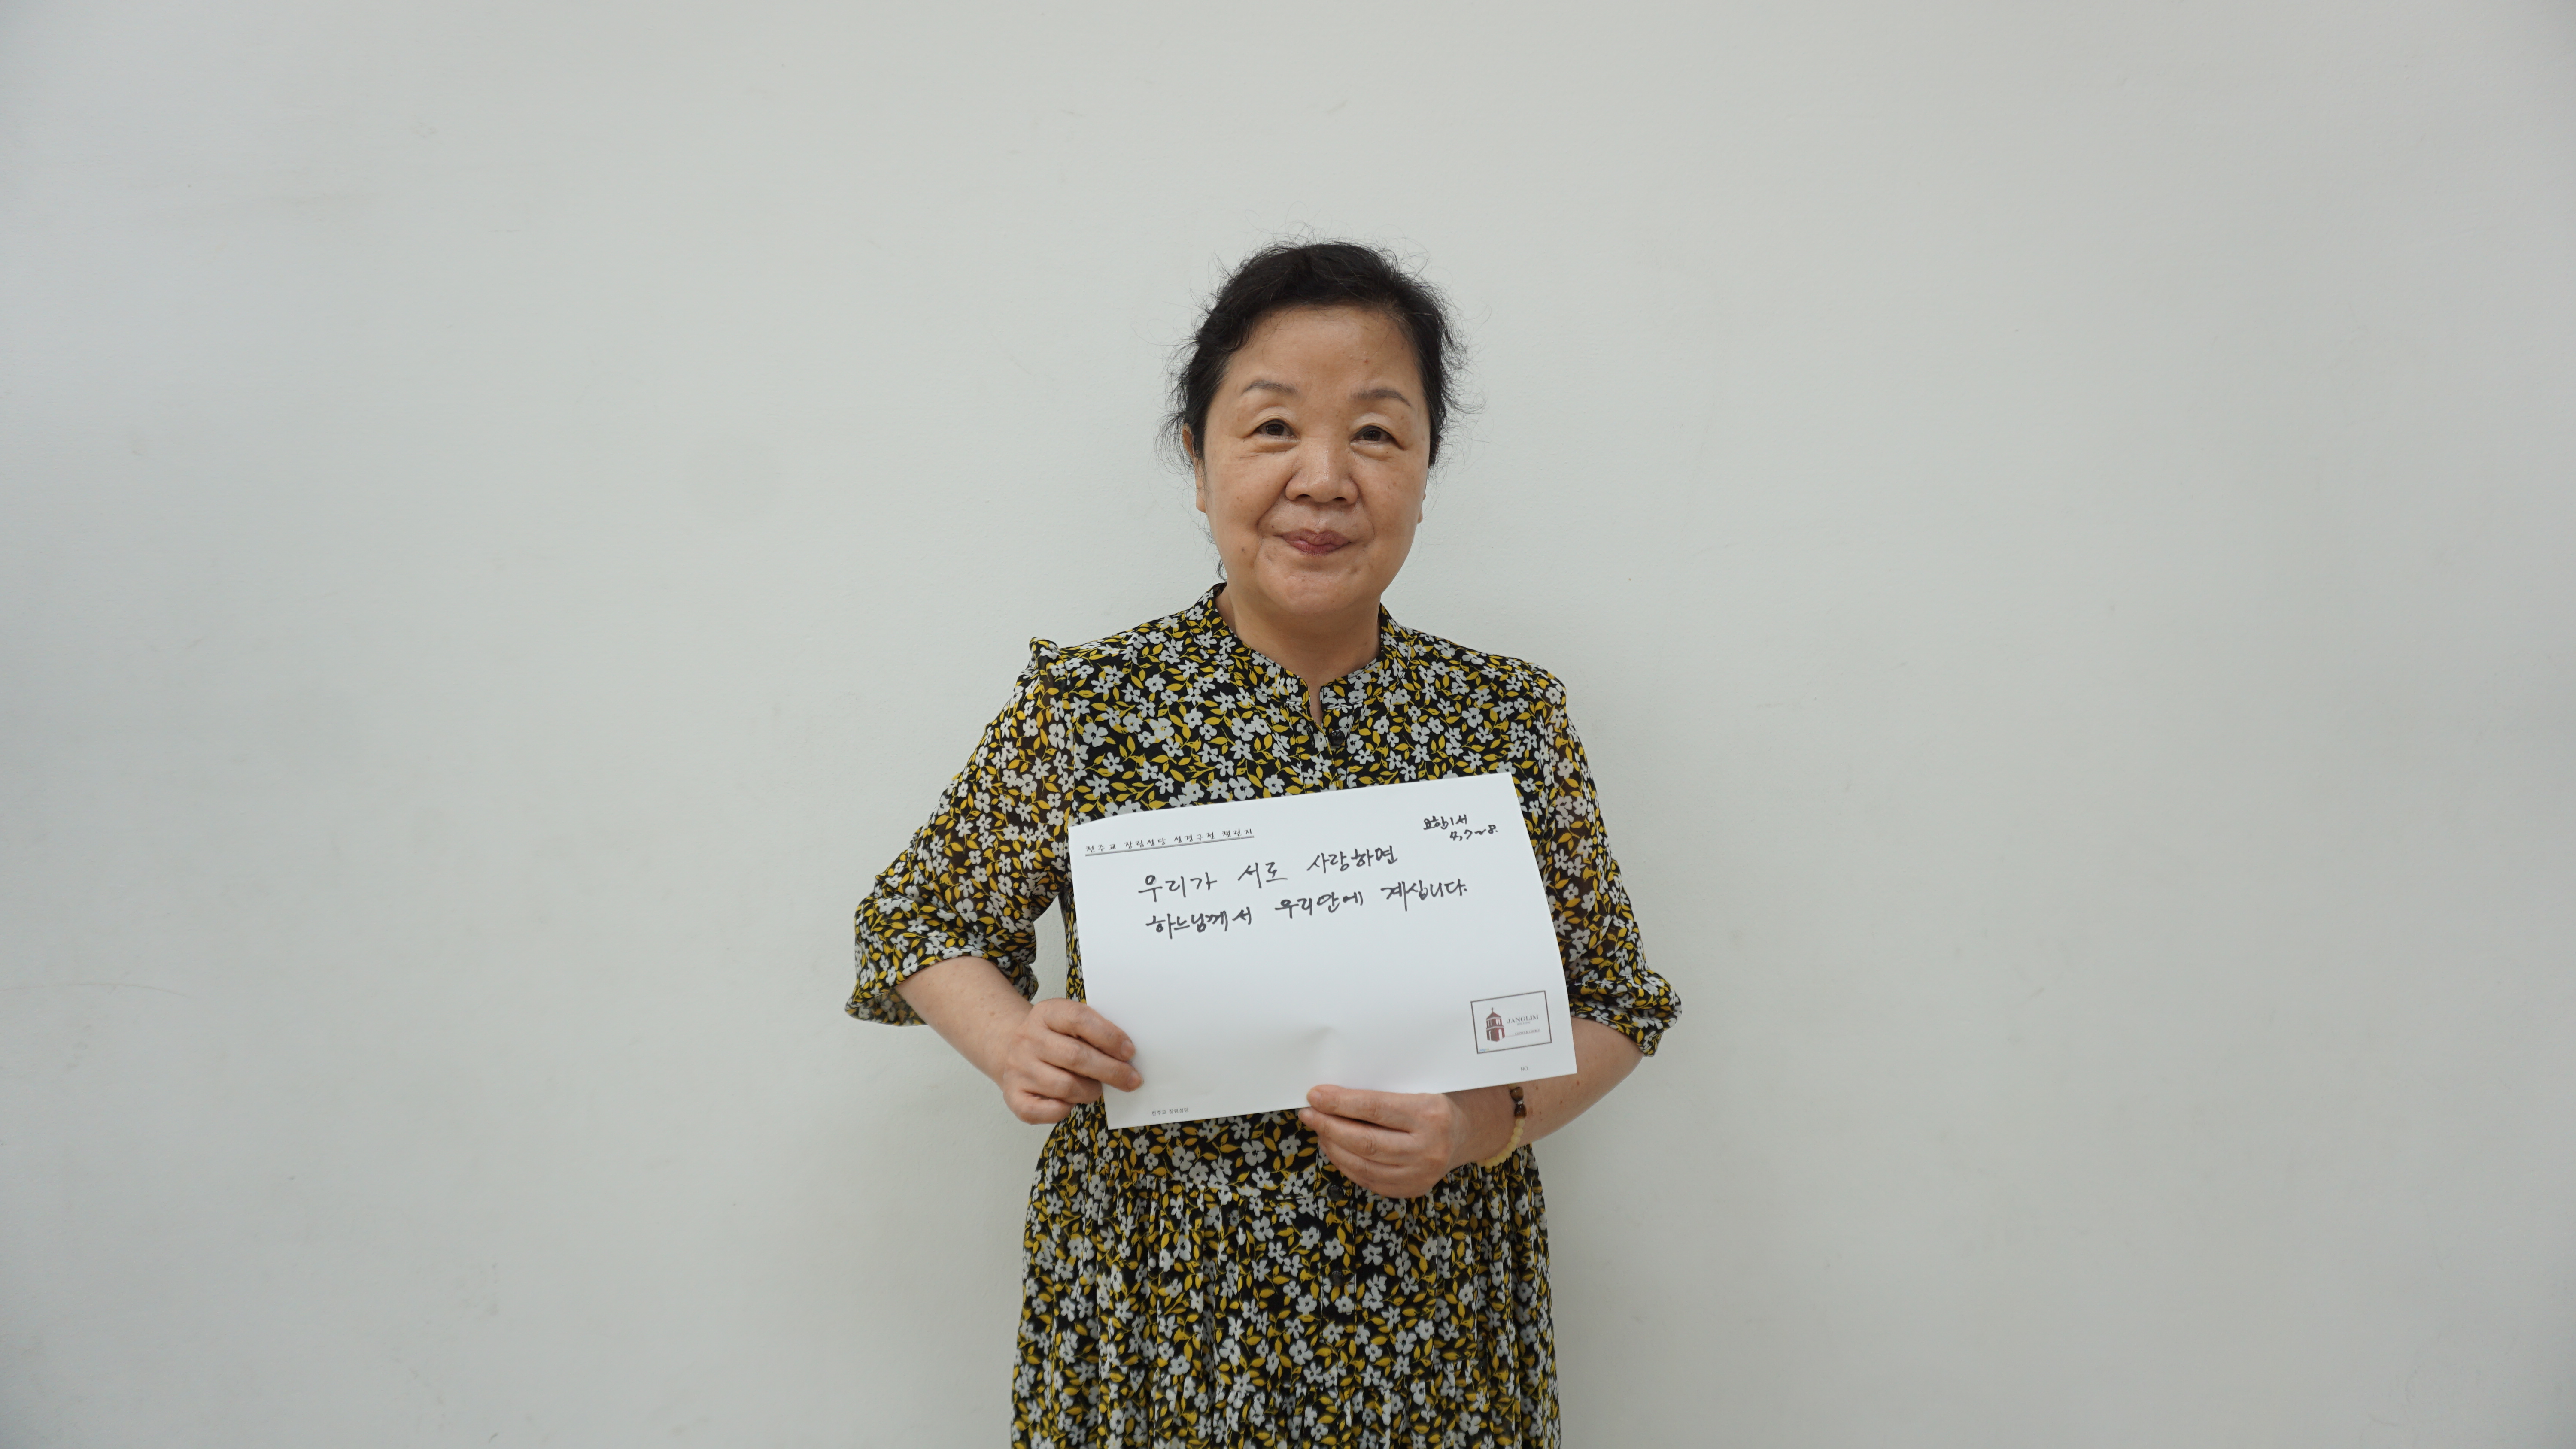 천주교 장림성당 성경구절 챌린지
요한1서
4,7~8.
우리가 서로 사랑하면
하느님께서 우리안에 계십니다.
JANGLIM
천주교 장림성당